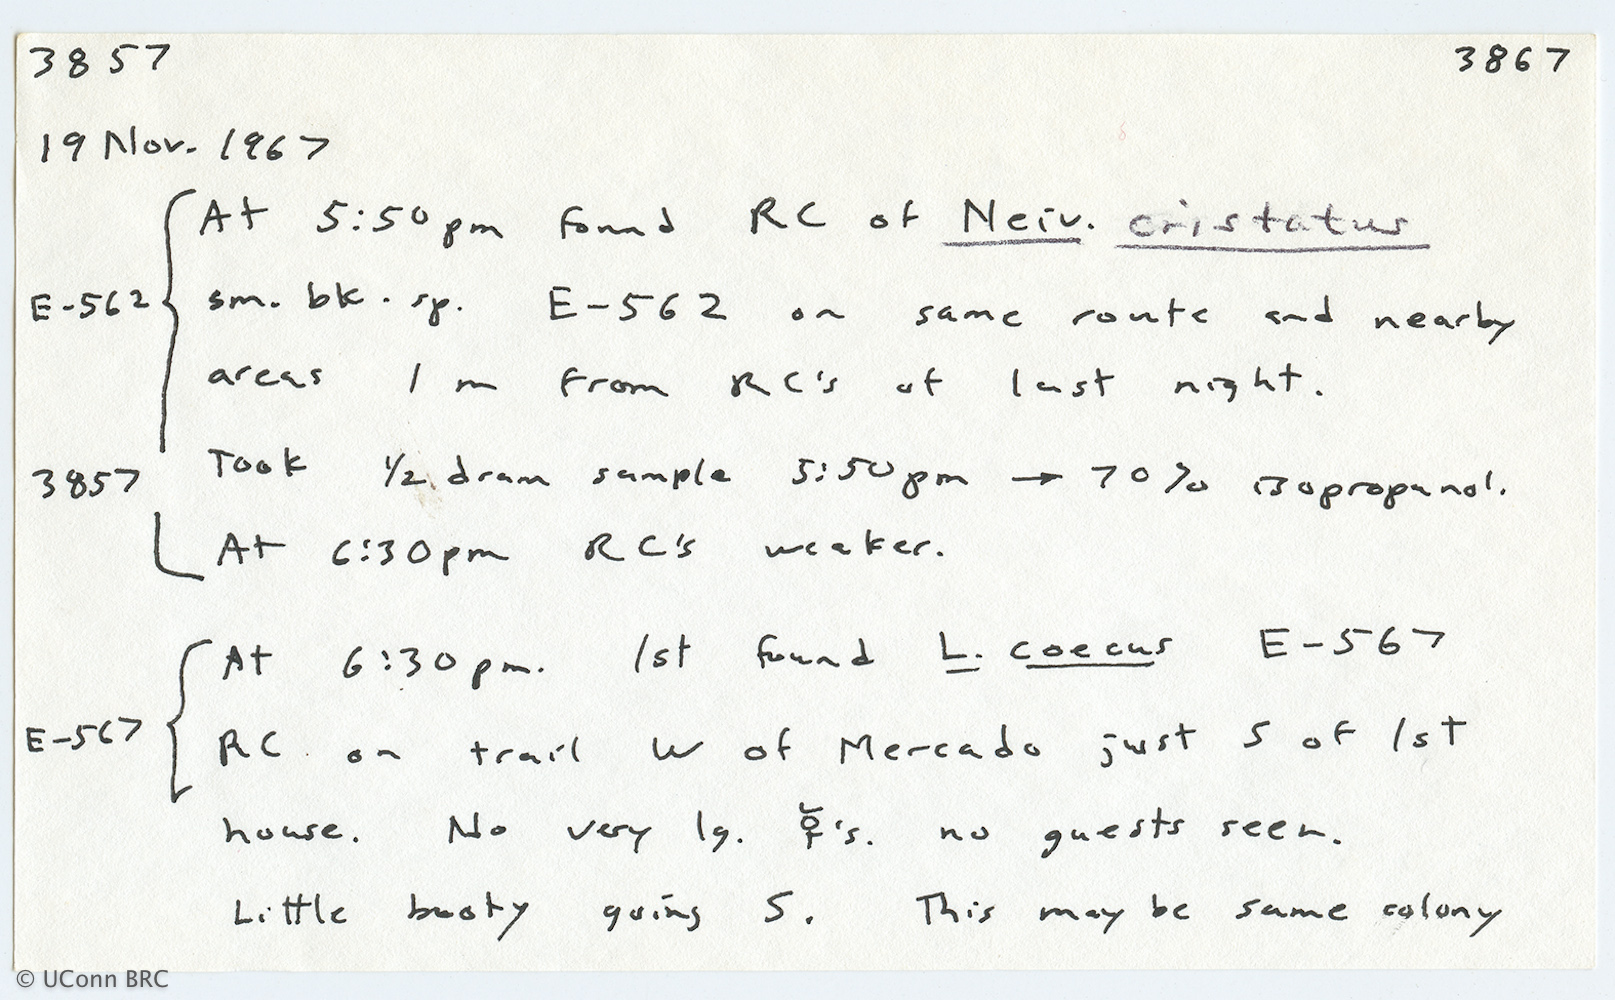 3857 3867
19 Nov. 1967
At 5:50pm found RC of Neiv. cristatus
E-562 sm. bk. sp. E-562 on same route and nearby
areas 1 m from RC's of last night.
3857 Took 1/2 dram sample 5:50pm → 70% isopropanol.
At 6:30pm RC's weaker.
At 6:30pm. 1st found L. coecus E-567
E-567 RC on trail W of Mercado just S of 1st
house. No very lg. ☿'s. no guests seen.
Little booty going S. This may be same colony
© UConn BRC